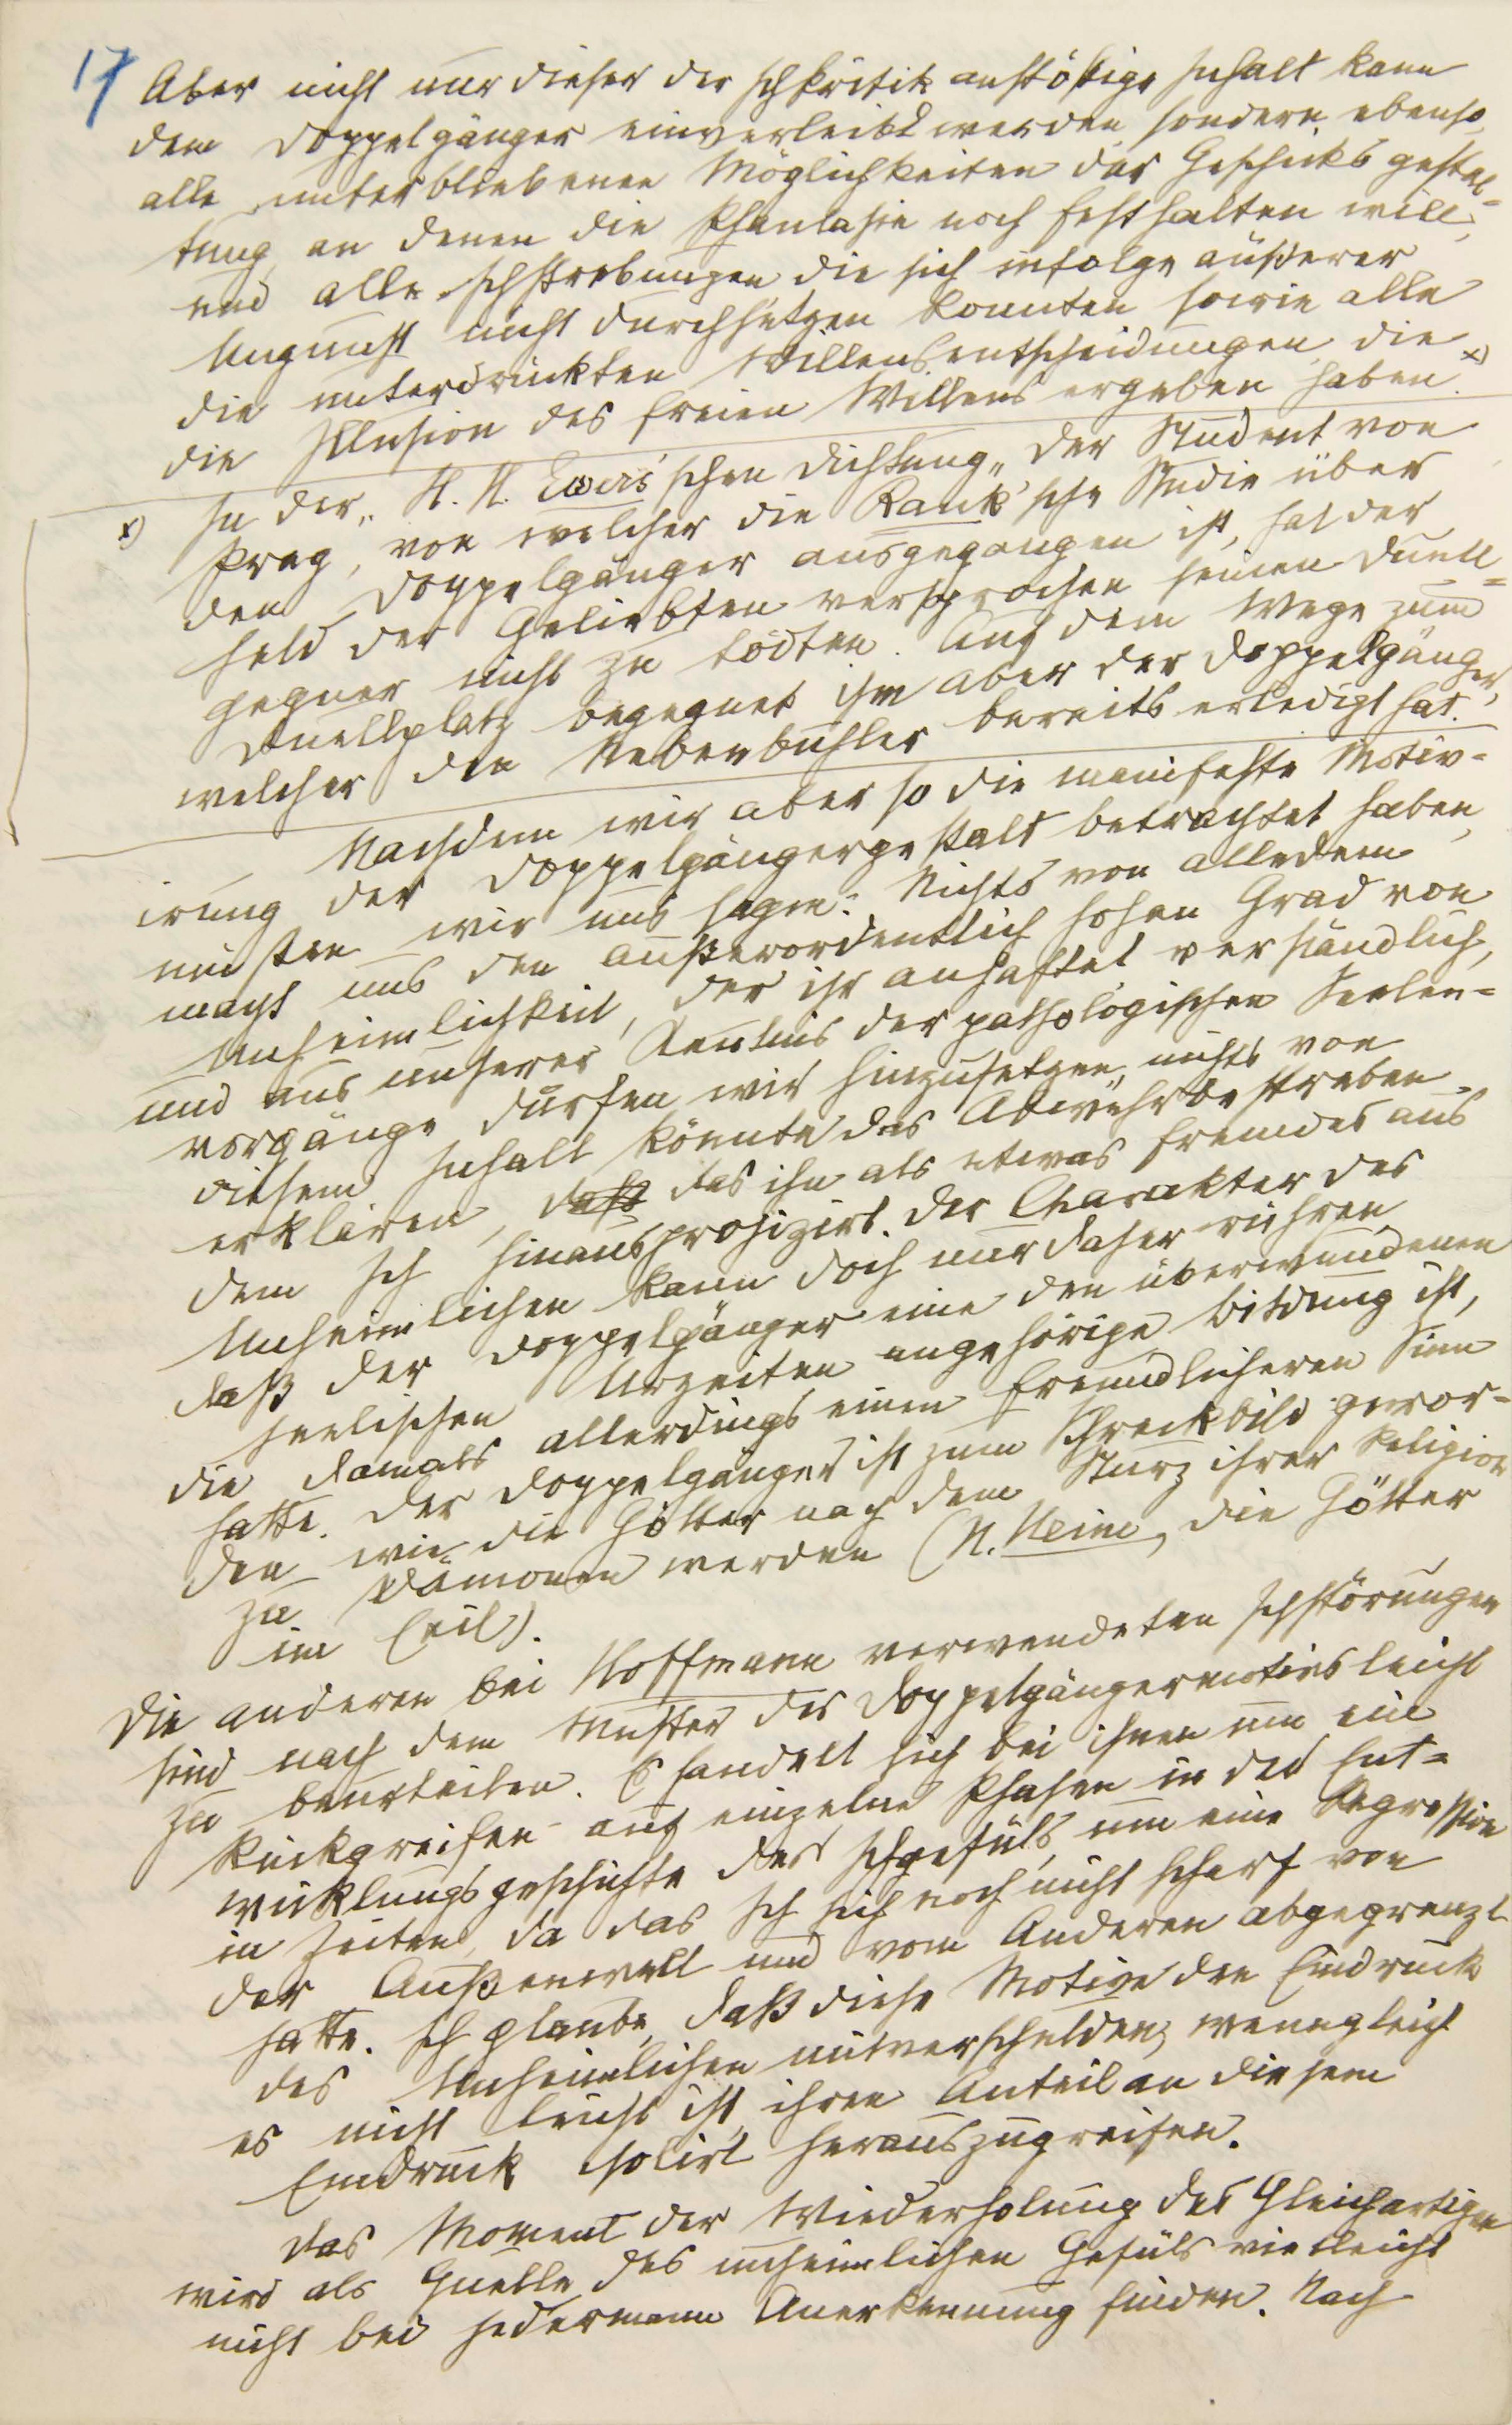 17
Aber nicht nur dieser der Ichkritik anstößige Inhalt kann
dem Doppelgänger einverleibt werden sondern ebenso
alle unterbliebenen Möglichkeiten der Geschicksgestal-
tung, an denen die Phantasie noch festhalten will,
und alle Ichstrebungen die sich infolge äußerer
Ungunst nicht durchsetzen konnten sowie alle
die unterdrückten Willensentscheidungen, die
die Illusion des freien Willens ergeben haben. x)
x) In der „H. H. Ewers'schen Dichtung „Der Student von
Prag, von welcher die Rank'sche Studie über
den Doppelgänger ausgegangen ist, hat der
Held der Geliebten versprochen seinen Duell=
gegner nicht zu tödten. Auf dem Wege zum
Duellplatz begegnet ihm aber der Doppelgänger,
welcher den Nebenbuhler bereits erledigt hat.
Nachdem wir aber so die manifeste Motiv-
irung der Doppelgängergestalt betrachtet haben,
müssen wir uns sagen: Nichts von alledem
macht uns den außerordentlich hohen Grad von
Unheimlichkeit, der ihr anhaftet verständlich,
und aus unserer Kenntnis der pathologischen Seelen=
vorgänge dürfen wir hinzusetzen, nichts von
diesem Inhalt könnte das Abwehrbestreben
erklären, daß das ihn als etwas fremdes aus
dem Ich hinausprojizirt. Der Charakter des
Unheimlichen kann doch nur daher rühren,
daß der Doppelgänger eine den überwundenen
seelischen Urzeiten angehörige Bildung ist,
die damals allerdings einen freundlicheren Sinn
hatte. Der Doppelgänger ist zum Schreckbild gewor-
den wie die Götter nach dem Sturz ihrer Religion
zu Dämonen werden (H. Heine, die Götter
im Exil).
Die anderen bei Hoffmann verwendeten Ichstörungen
sind nach dem Muster des Doppelgängermotivs leicht
zu beurteilen. Es handelt sich bei ihnen um ein
Rückgreifen auf einzelne Phasen in der Ent=
wicklungsgeschichte des Ichgefüls, um eine Regression
in Zeiten, da das Ich sich noch nicht scharf von
der Außenwelt und vom Anderen abgegrenzt
hatte. Ich glaube, daß diese Motive den Eindruck
des Unheimlichen mitverschulden, wenngleich
es nicht leicht ist, ihren Anteil an diesem
Eindruck isolirt herauszugreifen.
Das Moment der Wiederholung des Gleichartigen
wird als Quelle des unheimlichen Gefüls vielleicht
nicht bei jedermann Anerkennung finden. Nach